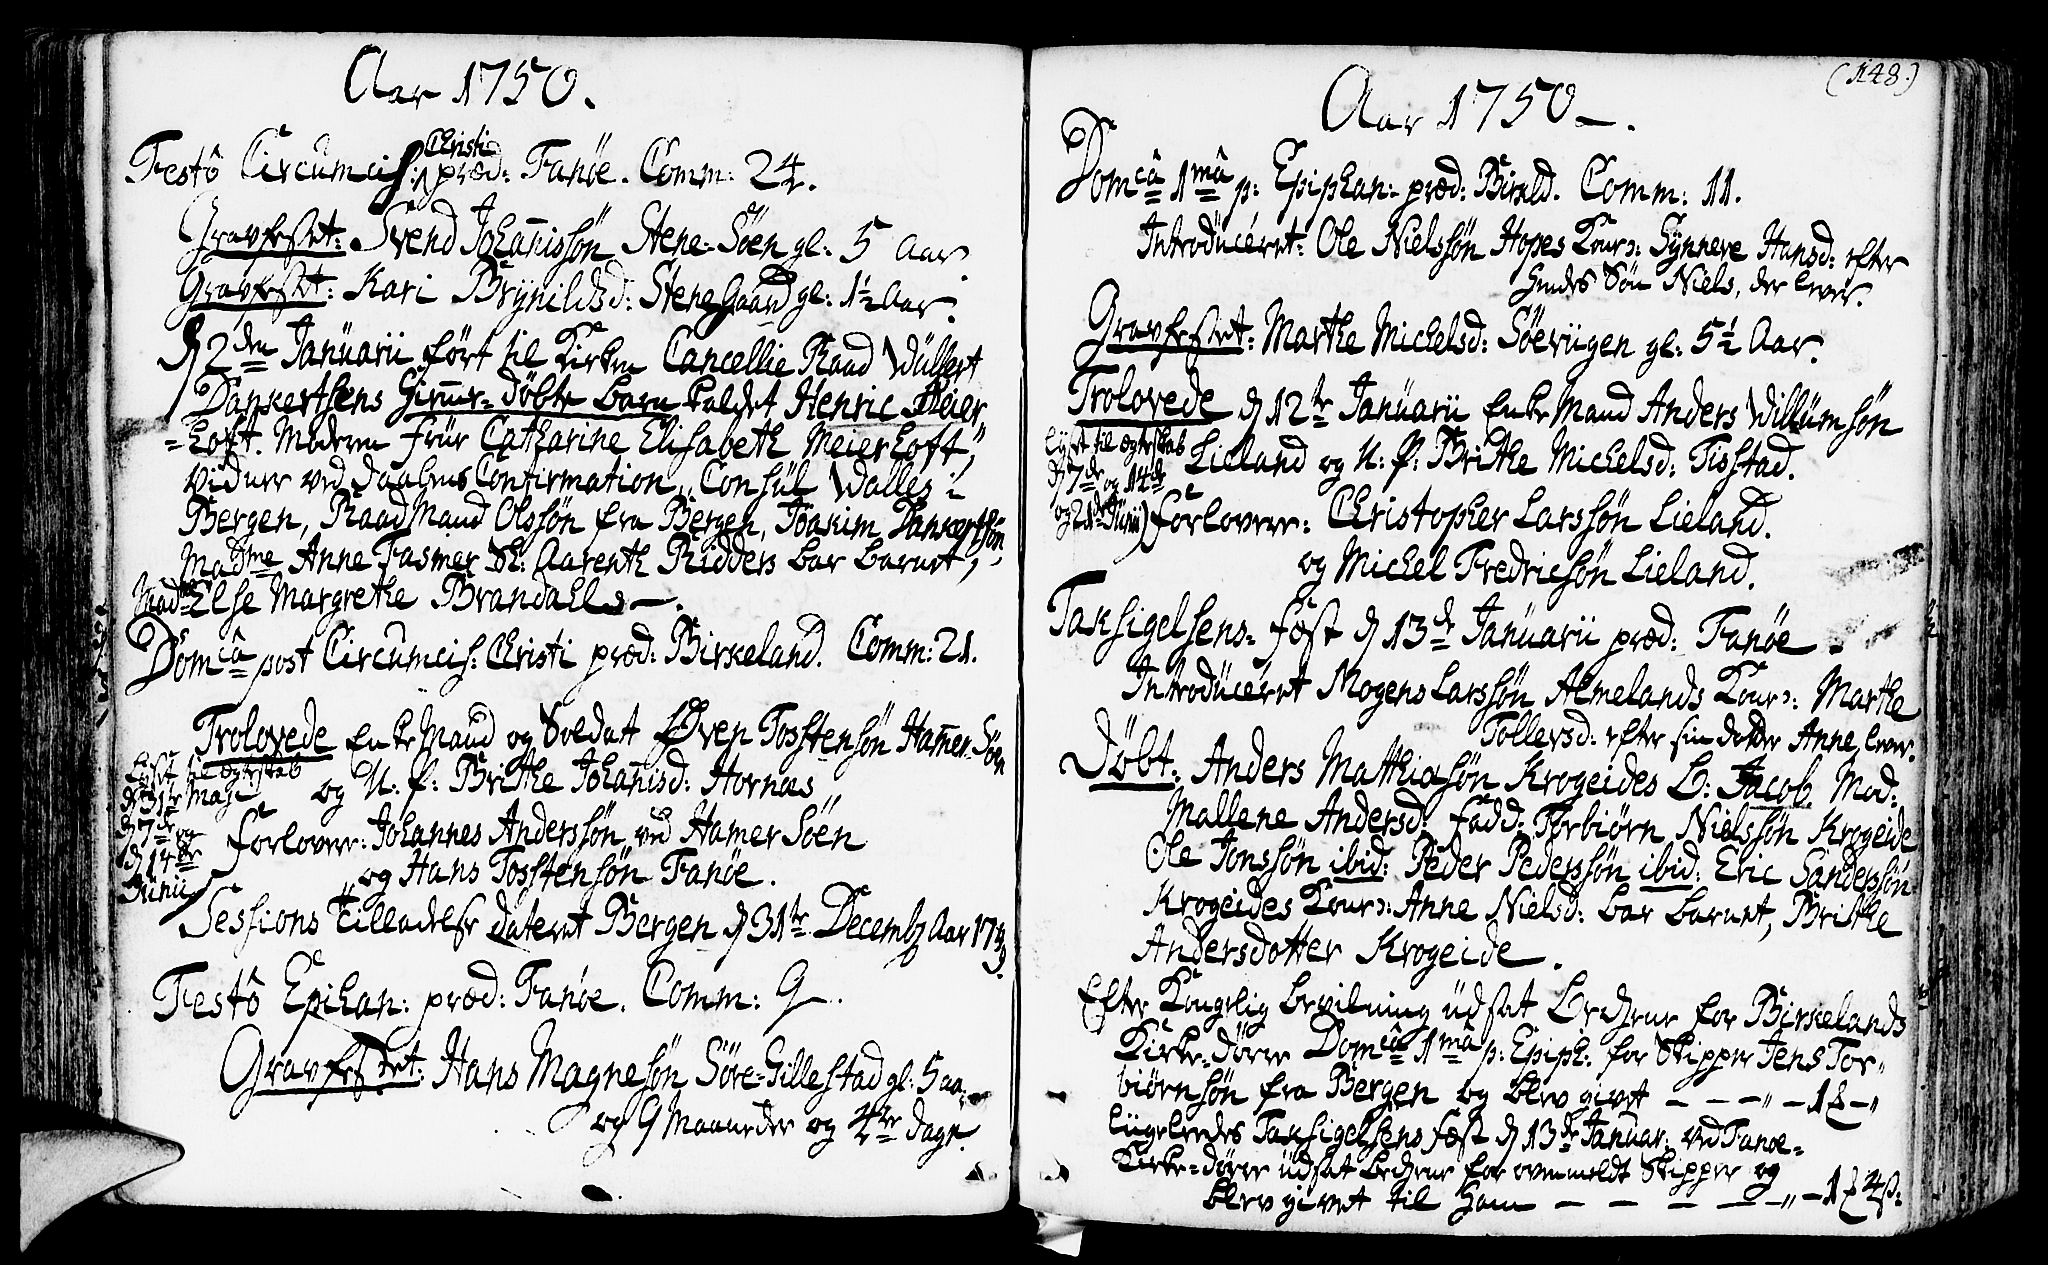 Aar 1750.
Festô Circumcis: Christi præd: Fanöe. Comm: 24.
Gravfestet: Svend Johanissön Stene-Söen gl: 5 Aar.
Gravfestet: Kari Brynildsd: Stene Gaard gl: 1½ Aar.
d 2den Januarii fört til Kirken Cancellie Raad Wüllert
Dankertsens hiemme-döbte barn kaldet Henric Meier
=hoft. Moderen Frür Catharine Elisabeth Meierhoft,
vidner ved Daabens Confirmation, Consül Walles i
Bergen, Raadmand Olssön fra Bergen, Joakim Dankertsön
Madme Anne Fasmer Sl: Aarenth Ridders bar barnet,
Madme Else Margrethe Brandahls.
Domcâ post Circumcis: Christi præd: Birkeland. Comm: 21.
Trolovede Enke Mand og Soldat Öven Tosstensön Hamer-Söen
og U: P: Brithe Johanisd: Hornæs
lyst til ægteskab
d 31te Maji
d 7de og
d 14de
Junii
Forlover: Johannes Anderssön ved Hamer Söen
og Hans Tosstensön Fanöe.
Sessions Tilladelse dateret Bergen d 31te Decemb Aar 1749.
Festô Epihan: præd: Fanöe. Comm: 9.
Gravfestet: Hans Magnesön Söre-Gillestad gl: 5 aa:
og 9 Maaneder og 4re dage.
(148.)
Aar 1750.
Domcâ 1mâ p: Epiphan: præd: Birkld. Comm: 11.
Introduceret: Ole Nielssön Hopes Kone: Synneve Hansd: efter
hendes Sön Niels, der lever.
Gravfestet: Marthe Michelsd: Söevügen gl: 5½ Aar.
Trolovede d 12te Januarii Enke Mand Anders Willümsön
Lieland og U: P: Brithe Michelsd: Tisstad.
lyst til ægteskab
d 7de og 14de
og 21de Junii
Forlovere: Christopher Larssön Lieland.
og Michel Fredricsön Lieland.
Taksigelsens-Fæst d 13de Januarii præd: Fanöe.
Introduceret Mogens Larssön Almelands Kone: Marthe
Tollevsd: efter sin datter Anne, lever.
Döbt: Anders Matthiasön Krogeides B: Jacob Mod:
Mallene Andersd: Fadd: Torbiörn Nielssön Krogeide
Ole Jonssön ibid: Peder Pederssön ibid: Eric Sanderssön
Krogeides Kone: Anne Nielsd: bar barnet, Brithe
Andersdotter Krogeide.
Efter Kongelig bevilning udsat Becken for Birkelands
Kirke-dörer Domcâ 1mâ p: Epiph: for Skipper Jens Tor-
biörnsön fra Bergen og blev givet — — — " — 1 ß — "
liigeleedes Taksigelsens Fæst d 13de Januar: ved Fanöe-
Kirke-dörer udsat becken for ovenmeldt Skipper og
blev givet til ham — — — — " — 1 4 ß: